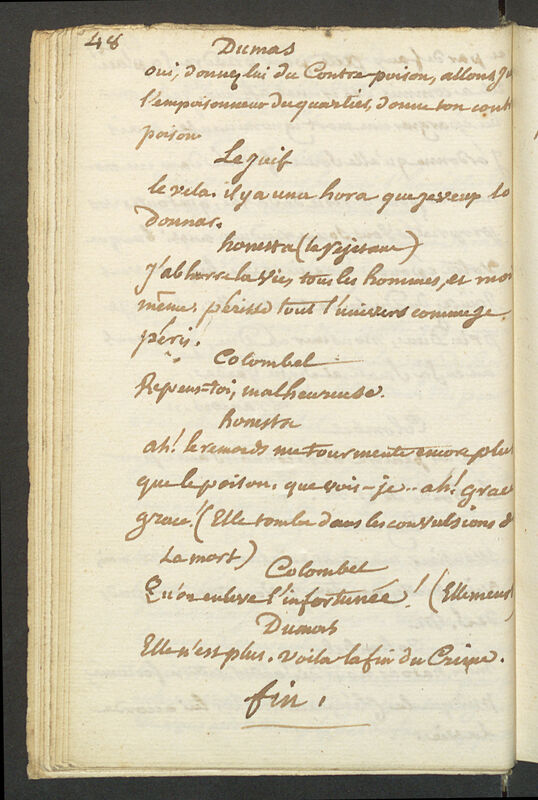 48
Dumas
oui, donnez lui du Contre-poison, allons
l'empoisonneur du quartier, donne ton cont
poison
Le juif
le vela. il y a una hora que je veux lo
donnar.
honesta (le rejetane)
J'abhorre la vie, tous les hommes, et mo
même, périsse tout l'univers comme je
péris!
Colombel
Repens-toi, malheureuse.
honesta
ah! le remords me tourmente encore plus
que le poison. que vois-je.. ah! grac
grace! (Elle tombe dans les convulsions d
La mort)
Colombel
Qu'on enleve l'infortunée! (Elle meurt)
Dumas
Elle n'est plus. voila la fin du Crime.
fin.